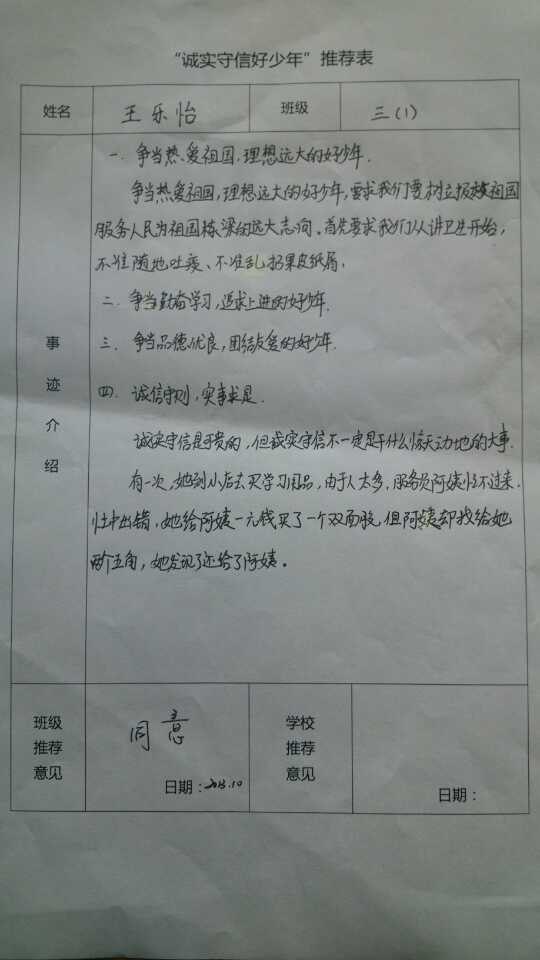 “诚实守信好少年”推荐表
姓名 王乐怡 班级 三(1)
一、争当热爱祖国,理想远大的好少年.
争当热爱祖国,理想远大的好少年,要求我们要树立报效祖国
服务人民为祖国栋梁的远大志向。首先要求我们从讲卫生开始,
不准随地吐痰、不准乱扔果皮纸屑.
二、争当勤奋学习,追求上进的好少年.
三、争当品德优良,团结友爱的好少年.
四、诚信守则,实事求是.
诚实守信是可贵的,但诚实守信不一定是干什么惊天动地的大事.
有一次,她到小店去买学习用品,由于人太多,服务员阿姨忙不过来.
忙中出错,她给阿姨一元钱买了一个双面胶,但阿姨却找给她
两个五角,她发现了还给了阿姨。
事迹介绍
班级推荐意见 同意 日期:2013.10
学校推荐意见 日期: